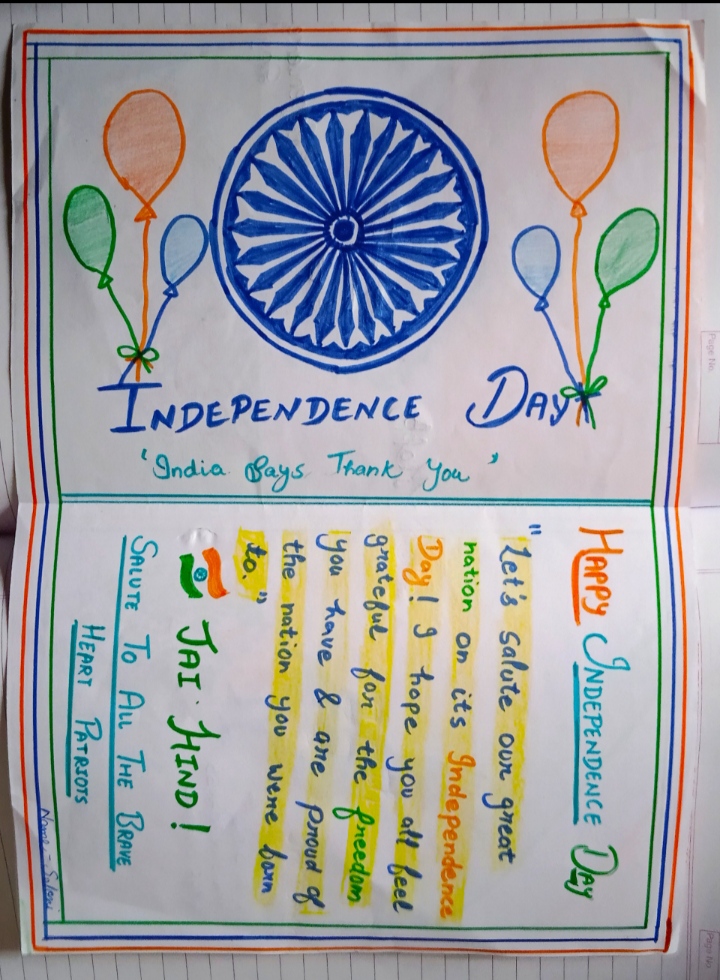 INDEPENDENCE DAY
'India Says Thank You'
HAPPY INDEPENDENCE DAY
"Let's salute our great
nation on its Independence
Day! I hope you all feel
grateful for the freedom
you have & are proud of
the nation you were born
to."
JAI HIND!
SALUTE TO ALL THE BRAVE
HEART PATRIOTS
Name:- Saloni
Page No.
Page No.